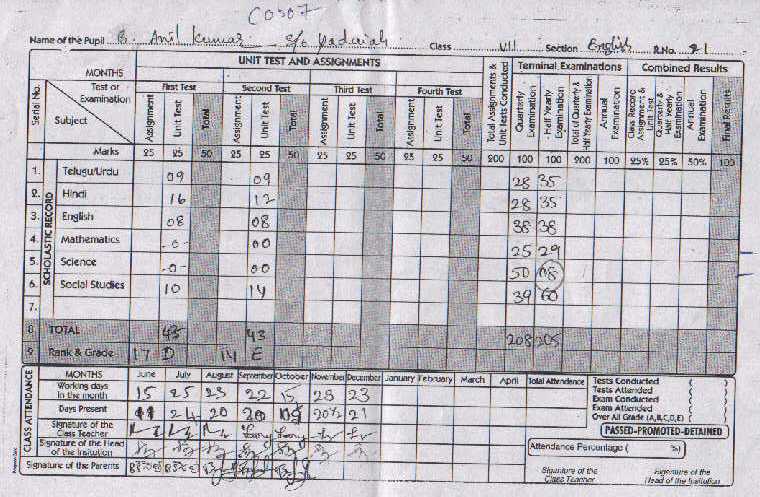 C0507
Name of the Pupil B. Anil Kumar S/o Yadaiah Class VII Section English R.No. 21
UNIT TEST AND ASSIGNMENTS Terminal Examinations Combined Results
MONTHS First Test Second Test Third Test Fourth Test
Serial No. Test or Examination Subject Assignment Unit Test Total Assignment Unit Test Total Assignment Unit Test Total Assignment Unit Test Total Total Assignments & Unit Tests Conducted Quarterly Examination Half Yearly Examination Total of Quarterly & Half Yearly Examination Annual Examination Class Record Assignments & Unit Test Quarterly & Half Yearly Examination Annual Examination Final Results
Marks 25 25 50 25 25 50 25 25 50 25 25 50 200 100 100 200 100 25% 25% 50% 100
SCHOLASTIC RECORD
1. Telugu/Urdu 09 09 28 35
2. Hindi 16 12 28 35
3. English 08 08 38 38
4. Mathematics -0- 00 25 29
5. Science -0- 00 50 08
6. Social Studies 10 14 39 60
7.
8. TOTAL 43 43 208 205
9. Rank & Grade 17 D 14 E
CLASS ATTENDANCE
MONTHS June July August September October November December January February March April Total Attendance
Working days in the month 15 25 23 22 15 23
Days Present 24 20 20 21
Signature of the Class Teacher
Signature of the Head of the Insitution
Signature of the Parents
Tests Conducted ( )
Tests Attended ( )
Exam Conducted ( )
Exam Attended ( )
Over All Grade (A,B,C,D,E) ( )
PASSED-PROMOTED-DETAINED
Attendance Percentage ( %)
Signature of the Class Teacher
Signature of the Head of the Insitution